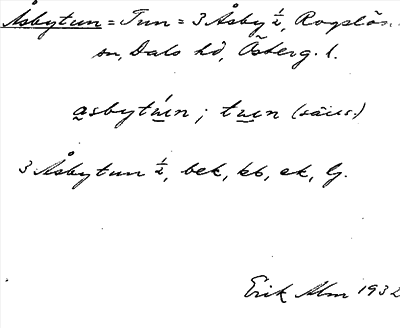 Åsbytun = Tun = 3 Åsby ½, Rogslös
sn, Dals hd, Österg. l.
asbytúin; tuen (säics.)
3 Åsbytun ½, bek, kb, ek, G.
Erik Alm 1932